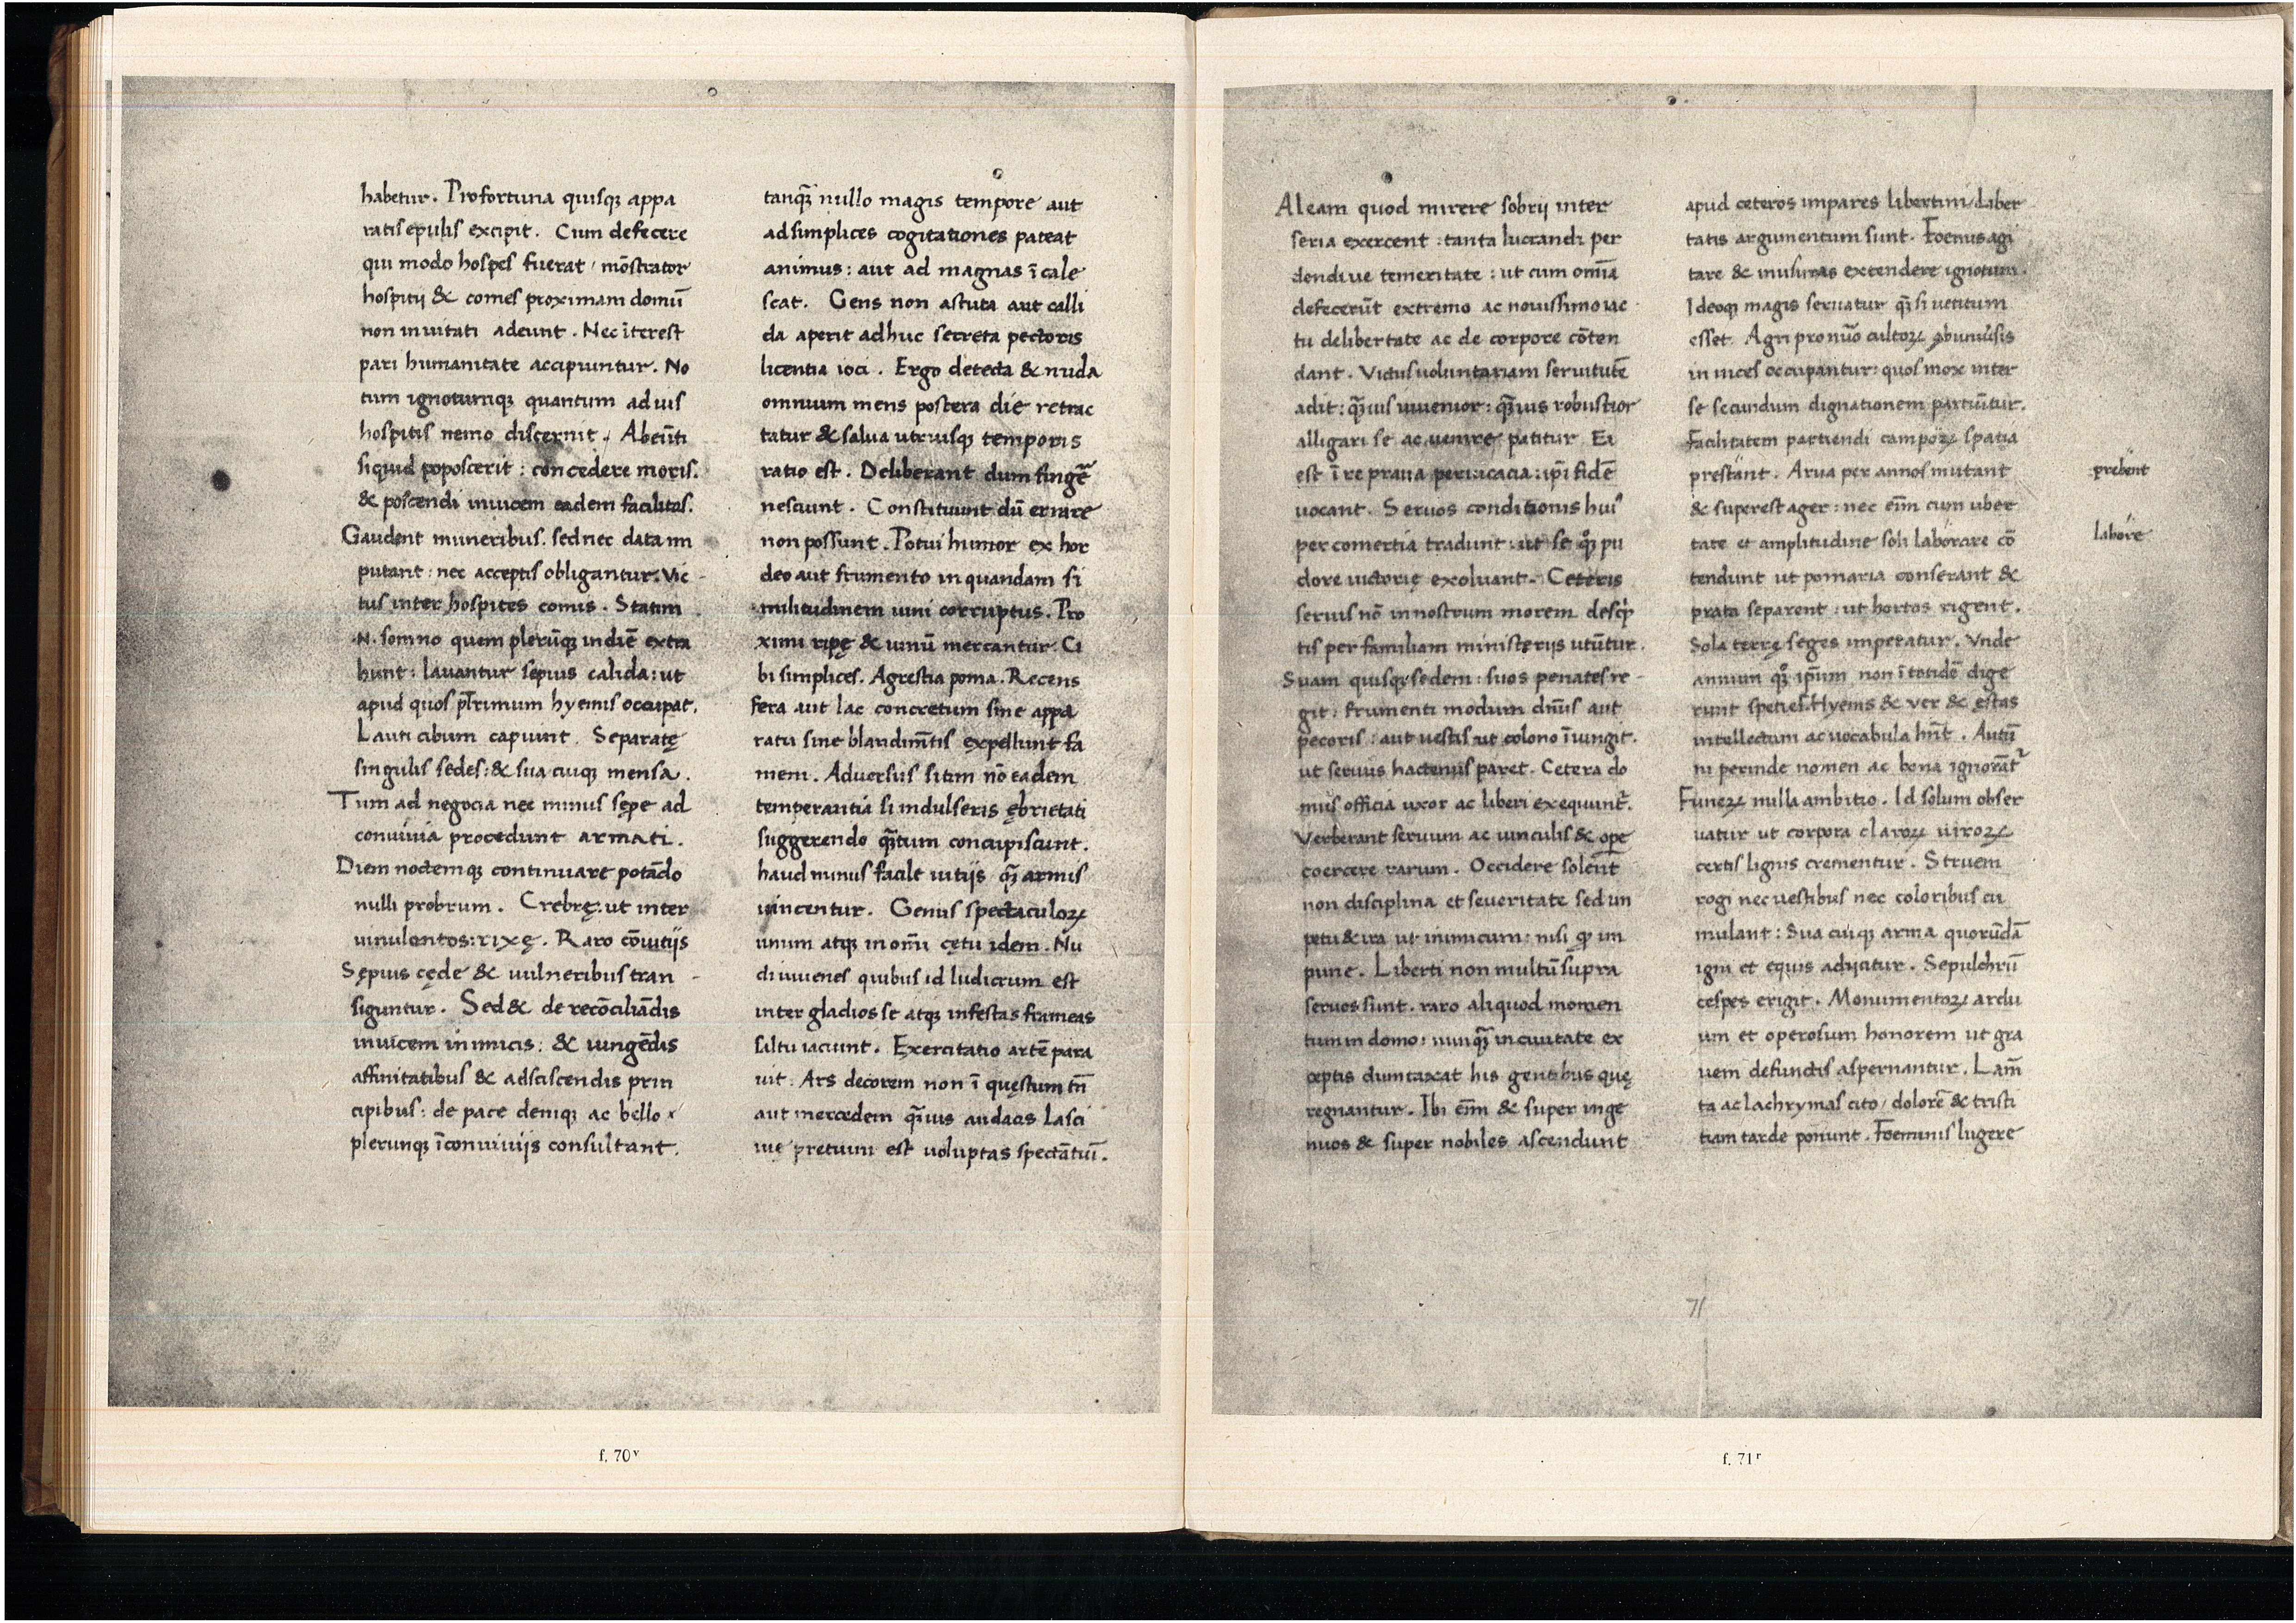 habetur. Profortuna quisqꝫ appa
ratis epulis excipit. Cum defecere
qui modo hospes fuerat / mōstrator
hospitij & comes proximam domū
non inuitati adeunt. Nec īterest
pari humanitate accipiuntur. No
tum ignotumqꝫ quantum ad uis
hospitis nemo discernit. Abeūti
siquid poposcerit : concedere moris.
& poscendi inuicem eadem facilitas.
Gaudent muneribus. sed nec data im
putant : nec acceptis obligantur. Vic -
tus inter hospites comis. Statim
.N. somno quem plerūqꝫ in diē extra
hunt : lauantur sepius calida : ut
apud quos pl̄rimum hyems occupat.
Lauti cibum capiunt. Separatę
singulis sedes : & sua cuiqꝫ mensa.
Tum ad negocia nec minus sępe ad
conuiuia procedunt armati.
Diem noctemqꝫ continuare potādo
nulli probrum. Crebrę : ut inter
uinulentos : rixę. Raro cōuitijs
Sępius cęde & uulneribus tran -
siguntur. Sed & de recōciliādis
inuicem inimicis : & iungēdis
affinitatibus & adsciscendis prin
cipibus : de pace deniqꝫ ac bello
plerunqꝫ ī conuiuijs consultant.
tanqꝫ̄ nullo magis tempore aut
ad simplices cogitationes pateat
animus : aut ad magnas ī cale
scat. Gens non astuta aut calli
da aperit adhuc secreta pectoris
licentia ioci. Ergo detecta & nuda
omnium mens postera die retrac
tatur & salua utriusqꝫ temporis
ratio est. Deliberant dum fingē
nesciunt. Constituunt dū errare
non possunt. Potui humor ex hor
deo aut frumento in quandam si
militudinem uini corruptus. Pro
ximi ripę & uinū mercantur. Ci
bi simplices. Agrestia poma. Recens
fera aut lac concretum sine appa
ratu sine blandim̄tis expellunt fa
mem. Aduersus sitim nō eadem
temperantia si indulseris ębrietati
suggerendo qꝫ̄tum concupiscunt.
haud minus facile uitijs qꝫ̄ armis
uincentur. Genus spectaculoꝝ
unum atqꝫ in om̄i cętu idem. Nu
di iuuenes quibus id ludicrum est
inter gladios se atqꝫ infestas frameas
saltu iaciunt. Exercitatio artē para
uit. Ars decorem non ī quęstum tn̄
aut mercedem qꝫ̄uis audacis lasci
uię pretium est uoluptas spectātiū.
f. 70ᵛ
Aleam quod mirere sobrij inter
seria exercent : tanta lucrandi per
dendiue temeritate : ut cum om̄ia
defecerūt extremo ac nouissimo iac
tu de libertate ac de corpore cōten
dant. Victus uoluntariam seruitutē
adit : qꝫ̄uis iuuenior : qꝫ̄uis robustior
alligari se ac uenire patitur. Ea
est ī re praua peruicacia : ip̄i fidē
uocant. Seruos conditionis huiꝰ
per comertia tradunt : ut se qꝫͦ pu
dore uictorię exoluant. Ceteris
seruis nō in nostrum morem descͥp
tis per familiam ministerijs utūtur.
Suam quisqꝫ sedem : suos penates re -
git : frumenti modum dn̄s aut
pecoris : aut uestis ut colono īiungit.
ut seruus hactenus paret. Cetera do
mus officia uxor ac liberi exequunt᷑.
Verberant seruum ac uinculis & ope
coercere rarum. Occidere solent
non disciplina et seueritate sed im
petu & ira ut inimicum : nisi ꝙ im
pune. Liberti non multū supra
seruos sunt. raro aliquod momen
tum in domo : nunqꝫ̄ in ciuitate ex
ceptis dumtaxat his gentibus quę
regnantur. Ibi em̄ & super inge
nuos & super nobiles ascendunt
apud ceteros impares libertini / liber
tatis argumentum sunt. Foenus agi
tare & in usuras extendere ignotum.
Ideoqꝫ magis seruatur qꝫ̄ si uetitum
esset. Agri pro nūo cultoꝝ ab uniuersis
in uices occupantur : quos mox inter
se secundum dignationem partiūtur.
Facilitatem partiendi campoꝝ spatia
prestant. Arua per annos mutant
& superest ager : nec em̄ cum uber
tate et amplitudine soli laborare cō
tendunt ut pomaria conserant &
prata separent : ut hortos rigent.
Sola terrę seges imperatur. Vnde
annum qꝫͦ ip̄um non ī totidē dige
runt species. Hyems & uer & ęstas
intellectum ac uocabula hn̄t. Autū
ni perinde nomen ac bona ignorāt᷑
Funeꝝ nulla ambitio. Id solum obser
uatur ut corpora claroꝝ uiroꝝ
certis lignis crementur. Struem
rogi nec uestibus nec coloribus cu
mulant : Sua cuiqꝫ arma quorūdā
igni et equus adijcitur. Sepulchrū
cespes erigit. Monumentoꝝ ardu
um et operosum honorem ut gra
uem defunctis aspernantur. Lam̄
ta ac lachrymas cito / dolorē & tristi
tiam tarde ponunt. Foeminis lugere
prebent
labore
71
f. 71ʳ